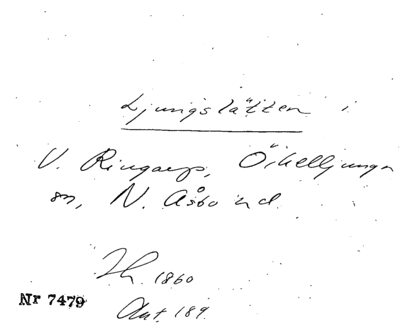 Ljungslätten i
V. Ringarp, Örkelljunga
sn, N. Åsbo hd.
Th. 1860
Nr 7479
Ant. 189.